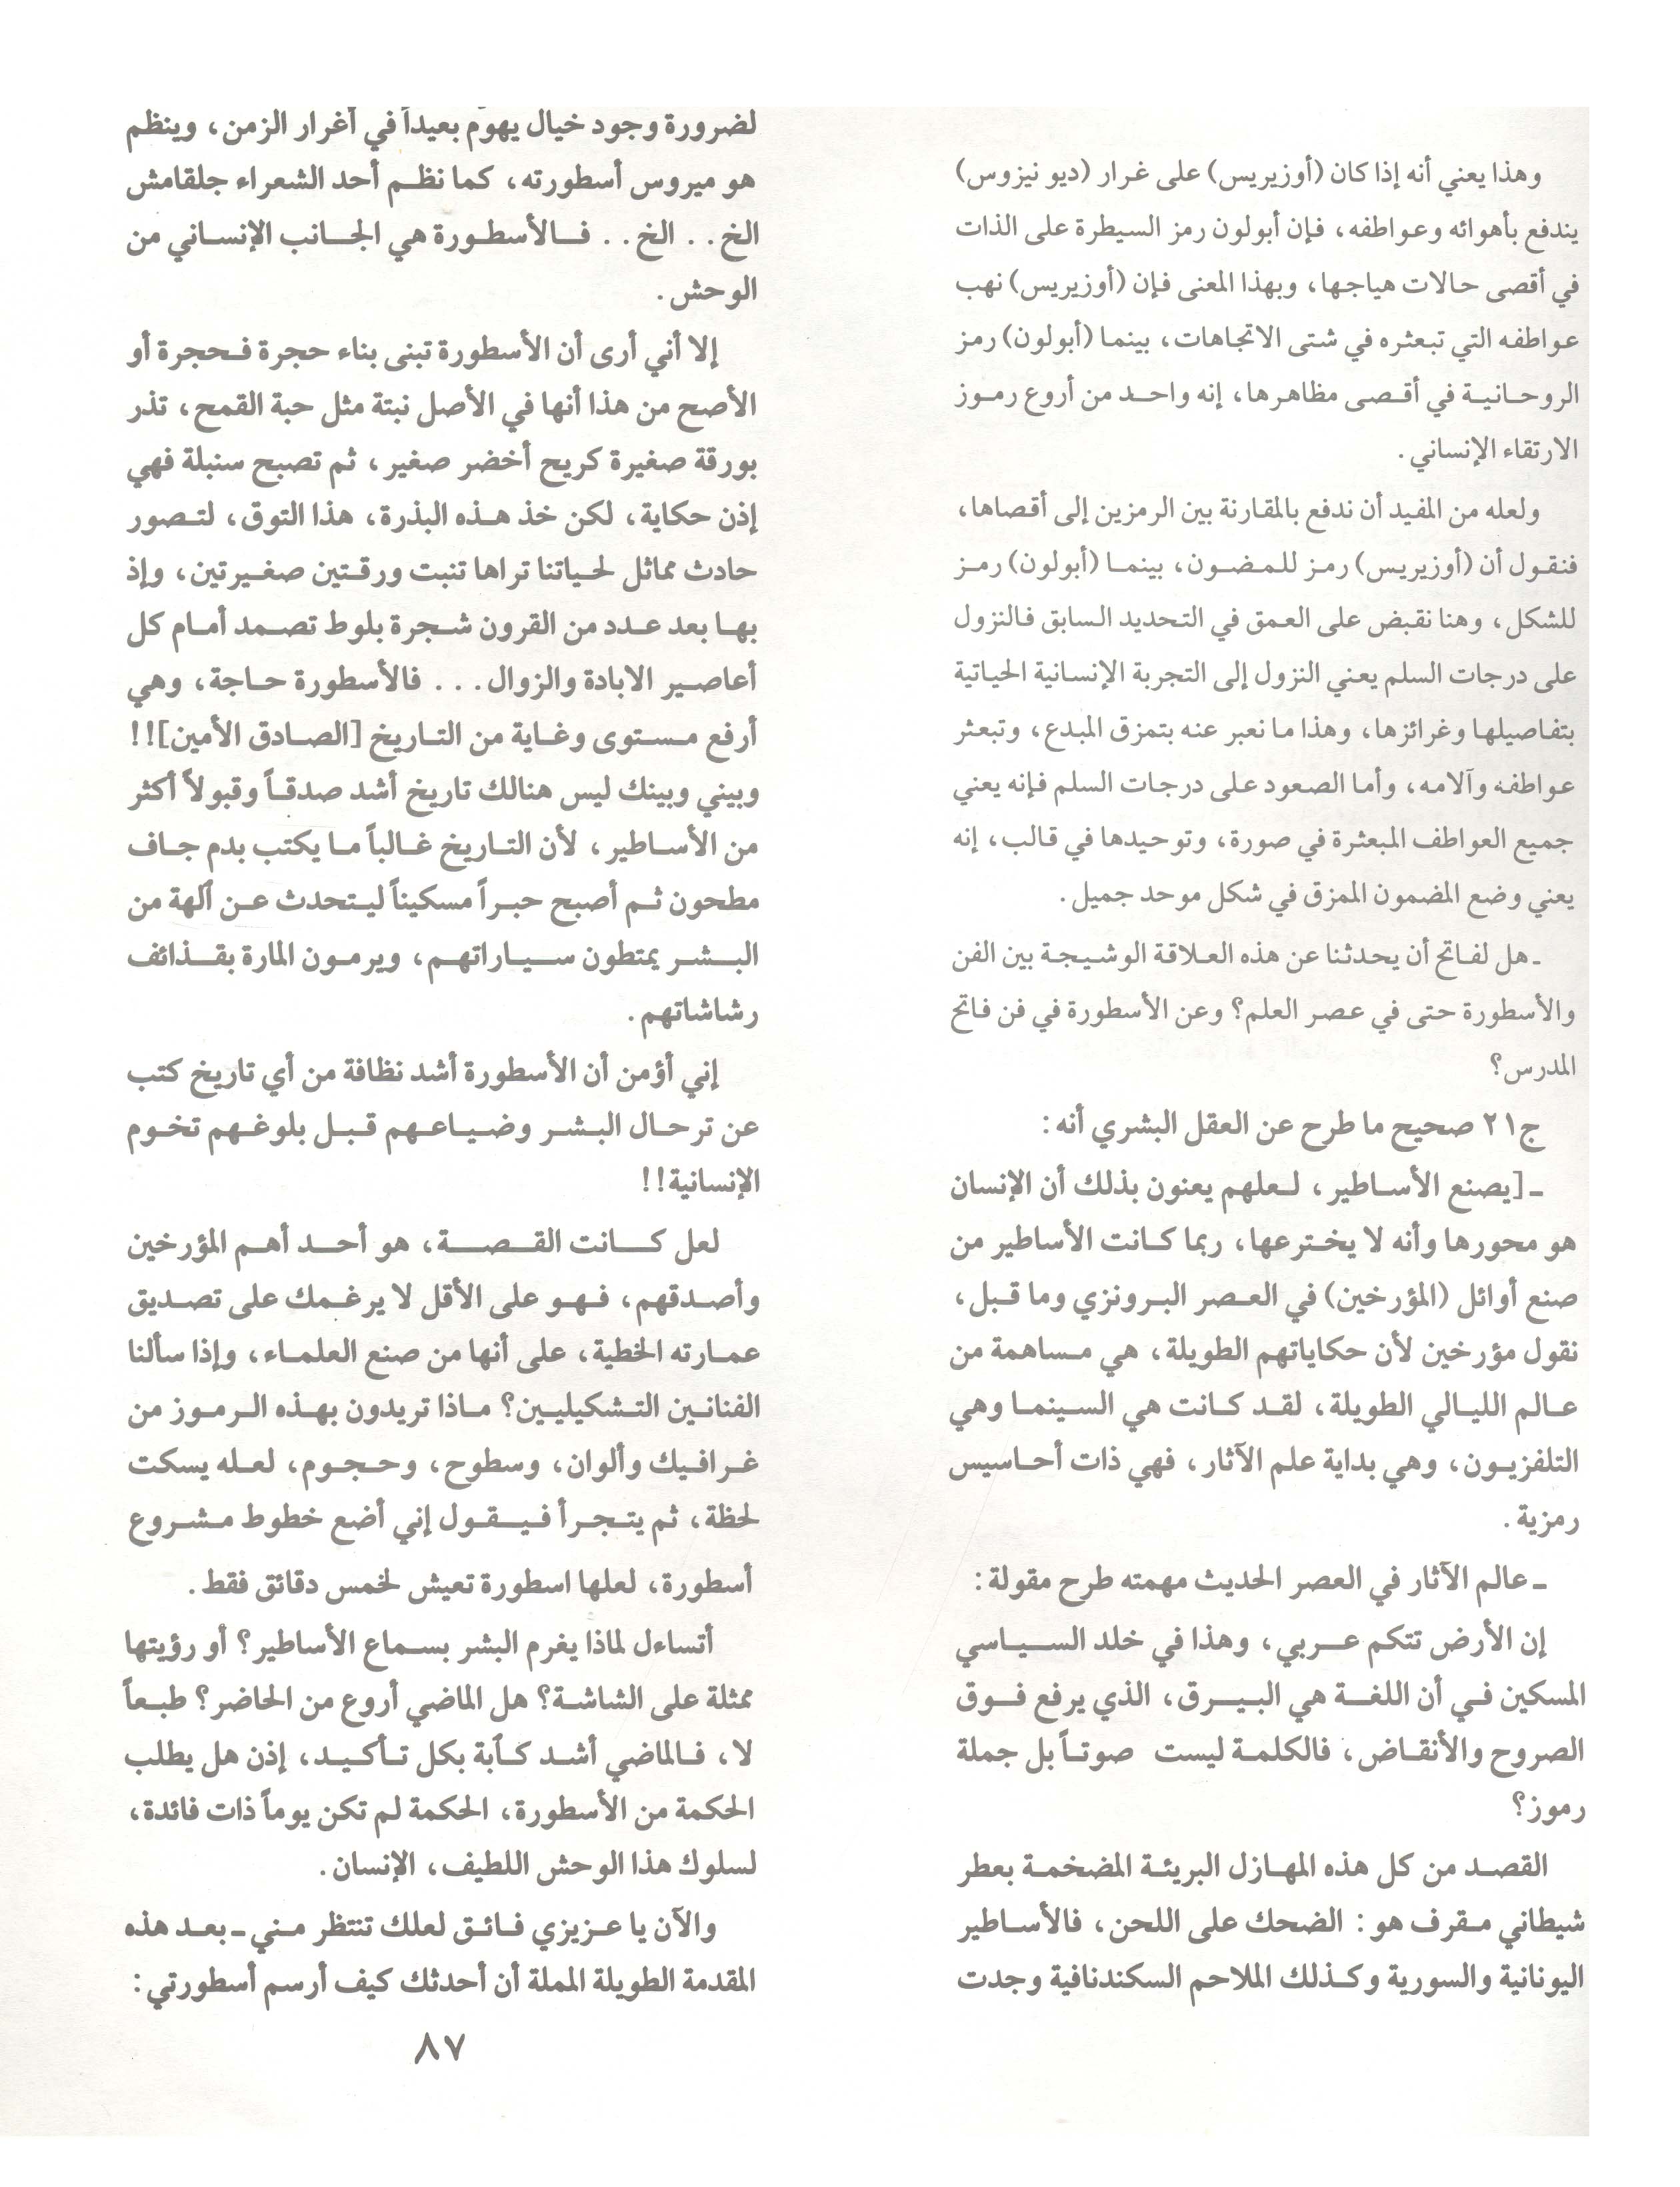 وهذا يعني أنه إذا كان (أوزيريس) على غرار (ديو نيزوس)
يندفع بأهوائه وعواطفه، فإن أبولون رمز السيطرة على الذات
في أقصى حالات هياجها، وبهذا المعنى فإن (أوزيريس) نهب
عواطفه التي تبعثره في شتى الاتجاهات، بينما (أبولون) رمز
الروحانية في أقصى مظاهرها، إنه واحد من أروع رموز
الارتقاء الإنساني.
ولعله من المفيد أن ندفع بالمقارنة بين الرمزين إلى أقصاها،
فنقول أن (أوزيريس) رمز للمضون، بينما (أبولون) رمز
للشكل، وهنا نقبض على العمق في التحديد السابق فالنزول
على درجات السلم يعني النزول إلى التجربة الإنسانية الحياتية
بتفاصيلها وغرائزها، وهذا ما نعبر عنه بتمزق المبدع، وتبعثر
عواطفه وآلامه، وأما الصعود على درجات السلم فإنه يعني
جميع العواطف المبعثرة في صورة، وتوحيدها في قالب، إنه
يعني وضع المضمون الممزق في شكل موحد جميل.
ـ هل لفاتح أن يحدثنا عن هذه العلاقة الوشيجة بين الفن
والأسطورة حتى في عصر العلم؟ وعن الأسطورة في فن فاتح
المدرس؟
ج٢١ صحيح ما طرح عن العقل البشري أنه:
ـ [يصنع الأساطير، لعلهم يعنون بذلك أن الإنسان
هو محورها وأنه لا يخترعها، ربما كانت الأساطير من
صنع أوائل (المؤرخين) في العصر البرونزي وما قبل،
نقول مؤرخين لأن حكاياتهم الطويلة، هي مساهمة من
عالم الليالي الطويلة، لقد كانت هي السينما وهي
التلفزيون، وهي بداية علم الآثار، فهي ذات أحاسيس
رمزية.
ـ عالم الآثار في العصر الحديث مهمته طرح مقولة:
إن الأرض تتكم عربي، وهذا في خلد السياسي
المسكين في أن اللغة هي البيرق، الذي يرفع فوق
الصروح والأنقاض، فالكلمة ليست صوتاً بل جملة
رموز؟
القصد من كل هذه المهازل البريئة المضخمة بعطر
شيطاني مقرف هو: الضحك على اللحن، فالأساطير
اليونانية والسورية وكذلك الملاحم السكندنافية وجدت
لضرورة وجود خيال يهوم بعيداً في أغرار الزمن، وينظم
هو ميروس أسطورته، كما نظم أحد الشعراء جلقامش
الخ.. الخ.. فالأسطورة هي الجانب الإنساني من
الوحش.
إلا أني أرى أن الأسطورة تبنى بناء حجرة فحجرة أو
الأصح من هذا أنها في الأصل نبتة مثل حبة القمح، تذر
بورقة صغيرة كريح أخضر صغير، ثم تصبح سنبلة فهي
إذن حكاية، لكن خذ هذه البذرة، هذا التوق، لتصور
حادث مماثل لحياتنا تراها تنبت ورقتين صغيرتين، وإذ
بها بعد عدد من القرون شجرة بلوط تصمد أمام كل
أعاصير الابادة والزوال... فالأسطورة حاجة، وهي
أرفع مستوى وغاية من التاريخ [الصادق الأمين]!!
وبيني وبينك ليس هنالك تاريخ أشد صدقاً وقبولاً أكثر
من الأساطير، لأن التاريخ غالباً ما يكتب بدم جاف
مطحون ثم أصبح حبراً مسكيناً ليتحدث عن آلهة من
البشر يمتطون سياراتهم، ويرمون المارة بقذائف
رشاشاتهم.
إني أؤمن أن الأسطورة أشد نظافة من أي تاريخ كتب
عن ترحال البشر وضياعهم قبل بلوغهم تخوم
الإنسانية!!
لعل كانت القصة، هو أحد أهم المؤرخين
وأصدقهم، فهو على الأقل لا يرغمك على تصديق
عمارته الخطية، على أنها من صنع العلماء، وإذا سألنا
الفنانين التشكيليين؟ ماذا تريدون بهذه الرموز من
غرافيك وألوان، وسطوح، وحجوم، لعله يسكت
لحظة، ثم يتجرأ فيقول إني أضع خطوط مشروع
أسطورة، لعلها اسطورة تعيش لخمس دقائق فقط.
أتساءل لماذا يغرم البشر بسماع الأساطير؟ أو رؤيتها
ممثلة على الشاشة؟ هل الماضي أروع من الحاضر؟ طبعاً
لا، فالماضي أشد كآبة بكل تأكيد، إذن هل يطلب
الحكمة من الأسطورة، الحكمة لم تكن يوماً ذات فائدة،
لسلوك هذا الوحش اللطيف، الإنسان.
والآن يا عزيزي فائق لعلك تنتظر مني ـ بعد هذه
المقدمة الطويلة المملة أن أحدثك كيف أرسم أسطورتي:
٨٧